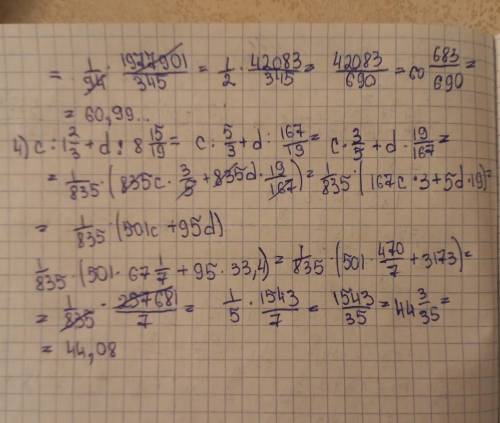 = 1/94 · 1977901/345 = 1/2 · 42083/345 = 42083/690 = 60 683/690 =
= 60,99...
4) c : 1 2/3 + d : 8 15/19 = c : 5/3 + d : 167/19 = c · 3/5 + d · 19/167 =
= 1/835 · (835c · 3/5 + 835d · 19/167) = 1/835 · (167c · 3 + 5d · 19) =
= 1/835 · (501c + 95d)
1/835 · (501 · 67 1/7 + 95 · 33,4) = 1/835 · (501 · 470/7 + 3173) =
= 1/835 · 257681/7 = 1/5 · 1543/7 = 1543/35 = 44 3/35 =
= 44,08